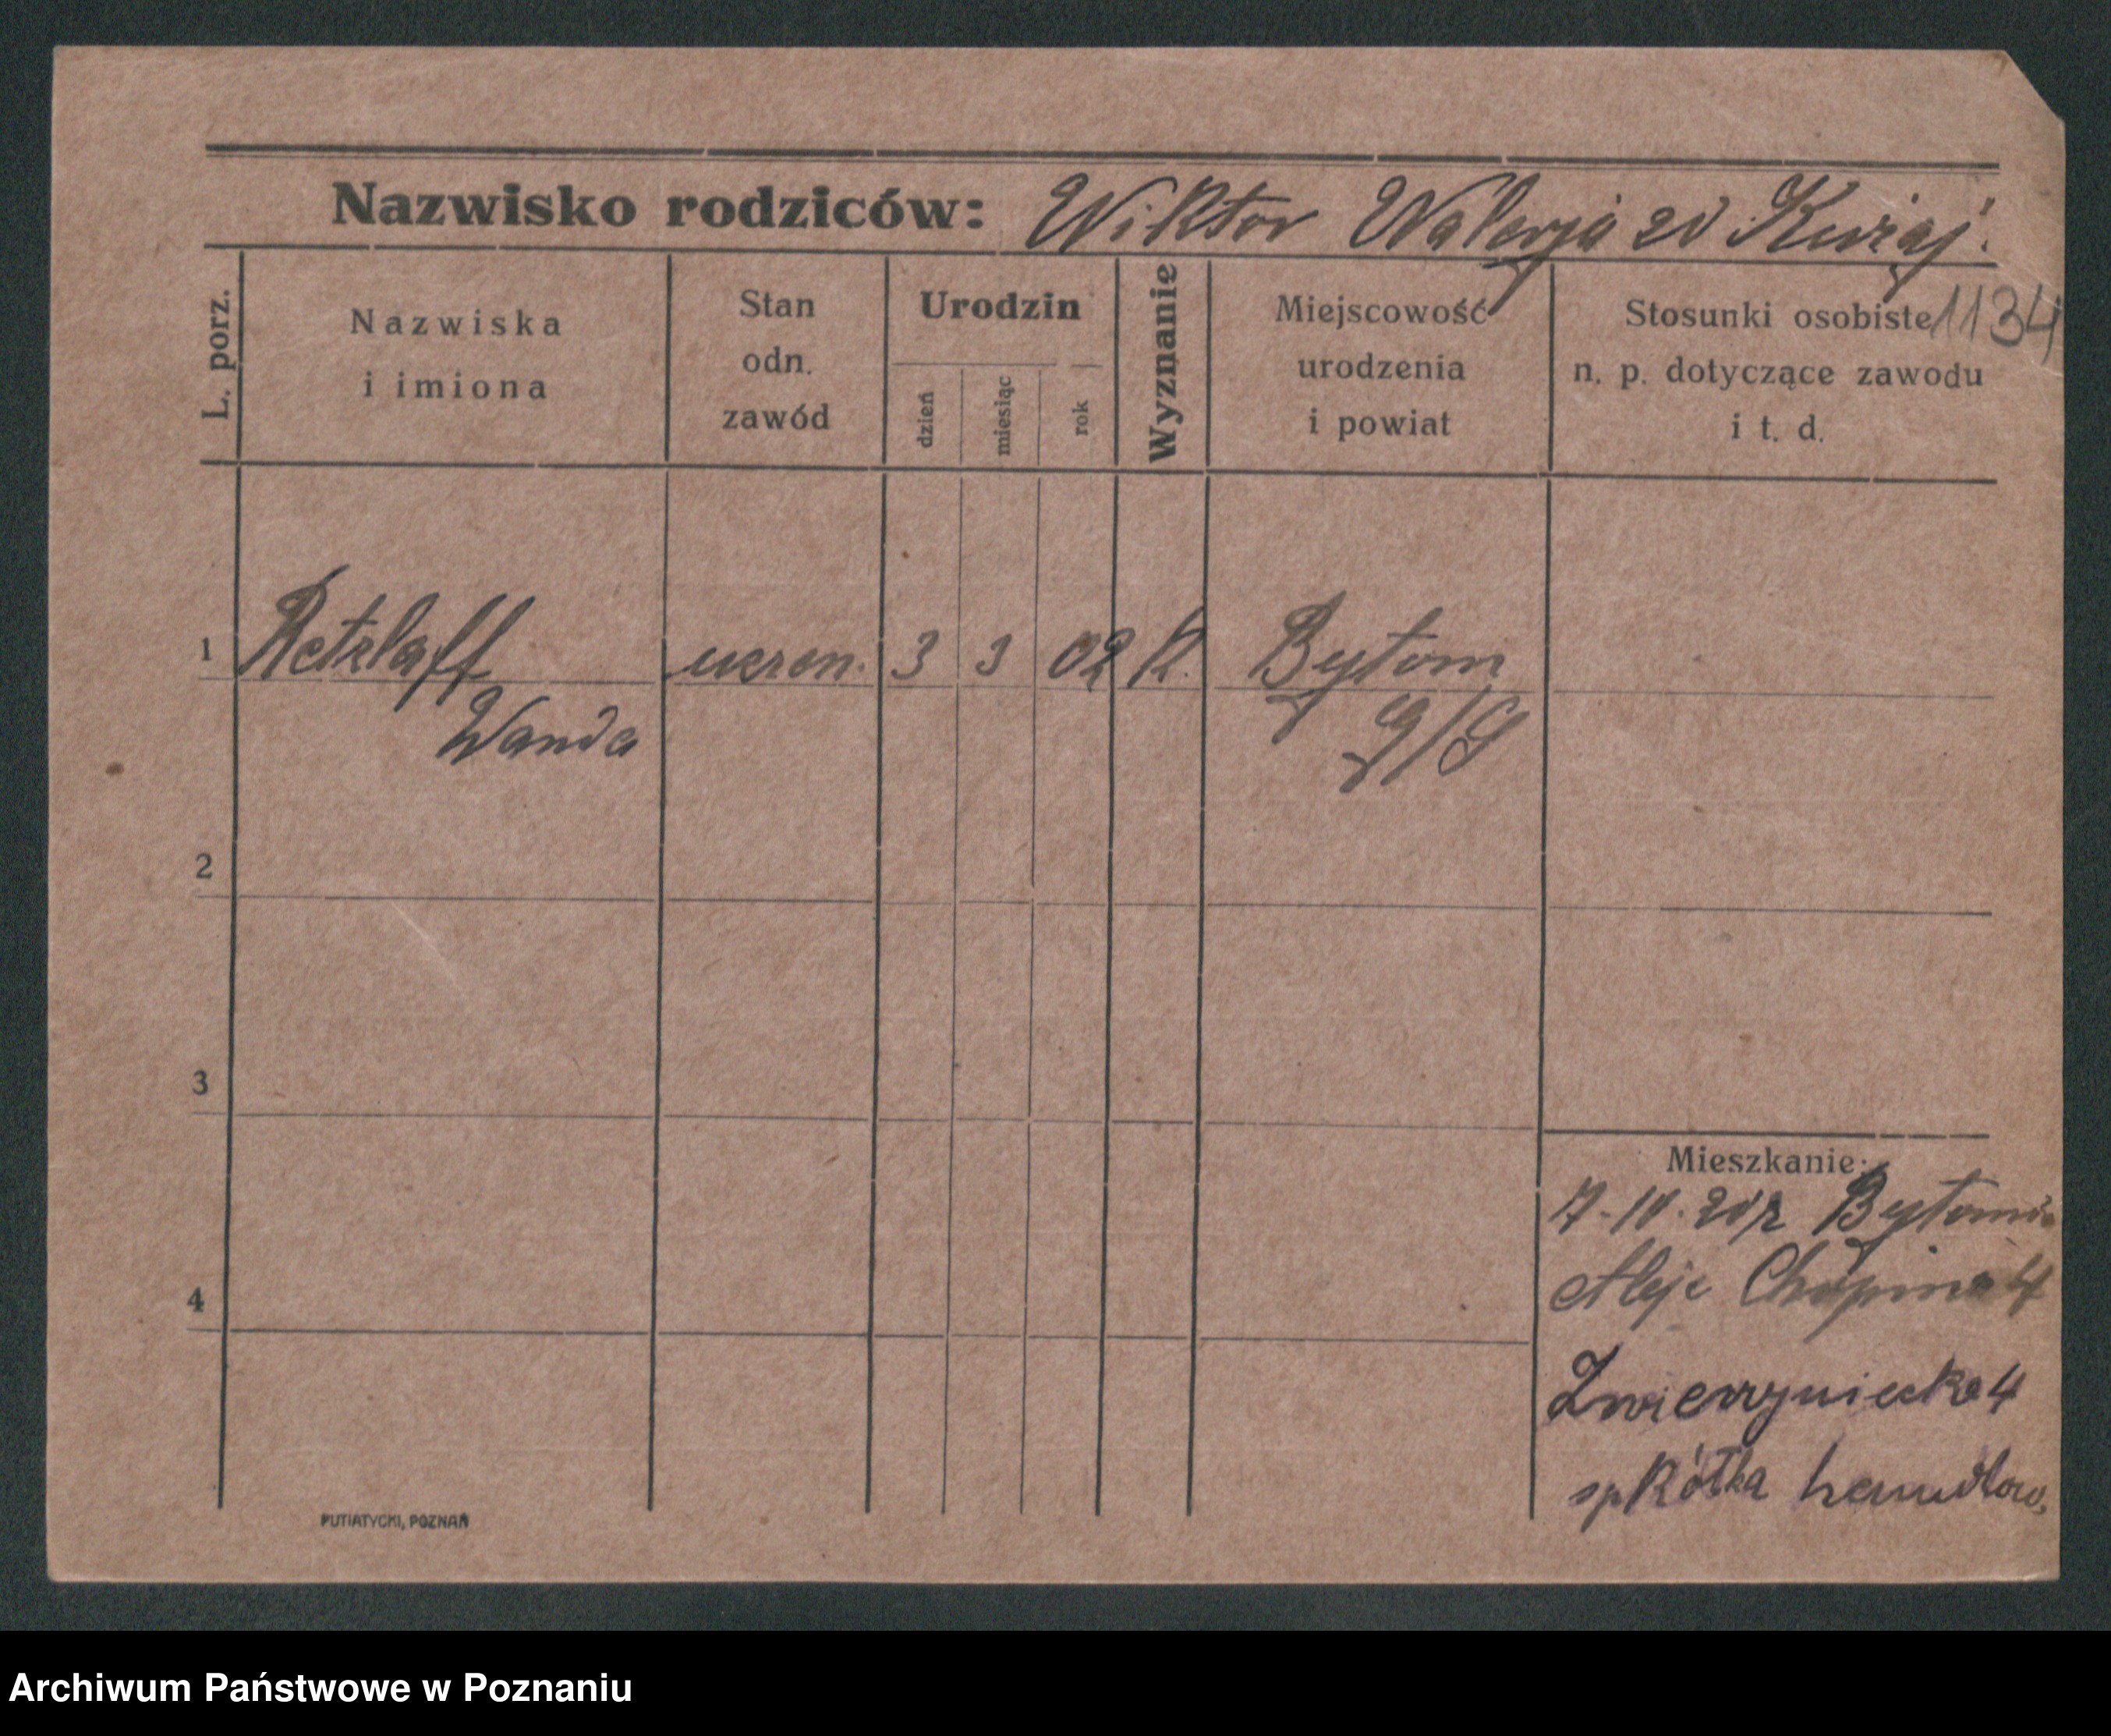 Nazwisko rodziców: Wiktor Walerja zd Kurzaj.
L. porz.
Nazwiska
i imiona
Stan
odn.
zawód
Urodzin
dzień
miesiąc
rok
Wyznanie
Miejscowość
urodzenia
i powiat
Stosunki osobiste
n. p. dotyczące zawodu
i t. d.
1134
1 Retzlaff uczen. 3 3 02 K. Bytom
Wanda G/S
2
3
4
Mieszkanie:
Aleje Chopina 4
Zwierzyniecka 4
spkółka handlow.
PUTIATYCKI, POZNAŃ
Archiwum Państwowe w Poznaniu